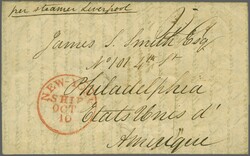 per steamer Liverpool
James S. Smith Esq
No 101 4th St
Philadelphia
Etats Unes d'
Amerique
NEW-YORK
SHIP
OCT
10